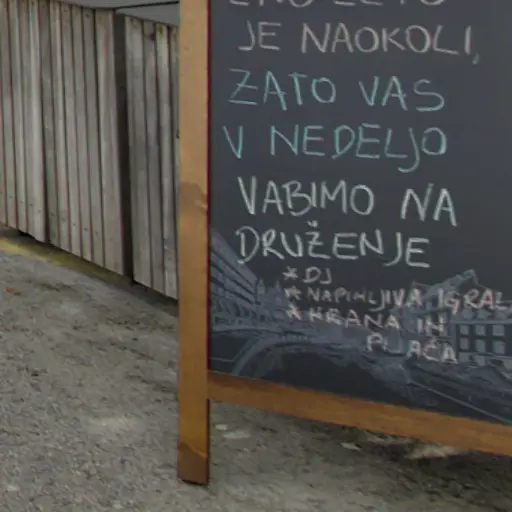 JE NAOKOLI,
ZATO VAS
V NEDELJO
VABIMO NA
DRUŽENJE
* DJ
* NAPIHLJIVA IGRAL
* HRANA IN
PIJAČA